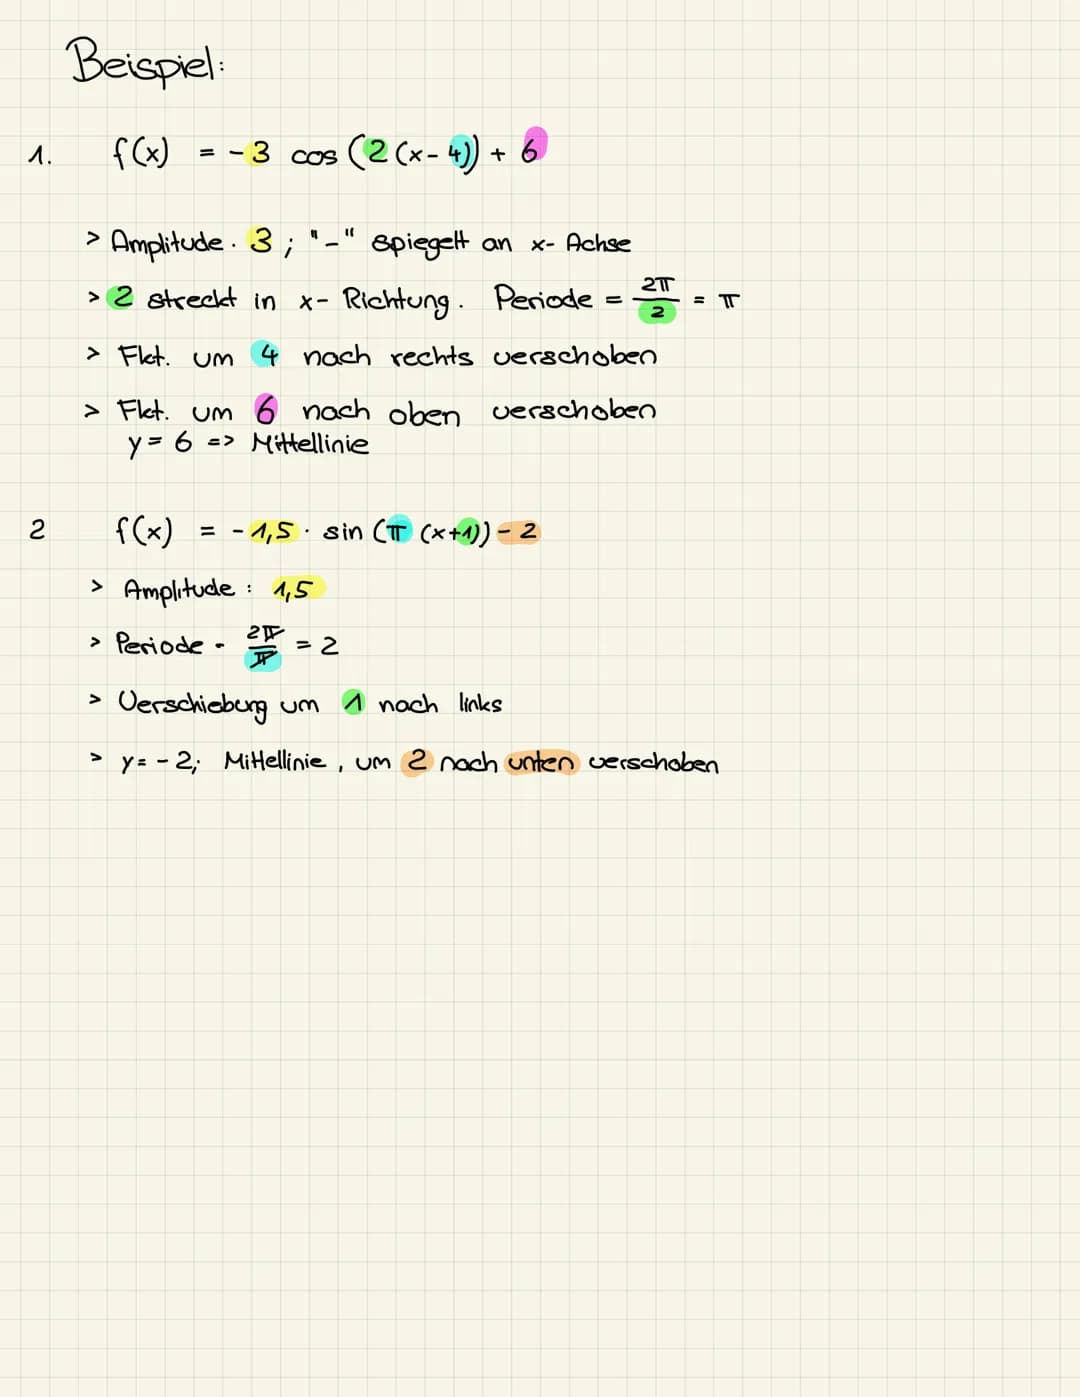 Beispiel:
1. f(x) = -3 cos (2(x-4)) + 6
> Amplitude. 3 ; "-" spiegelt an x-Achse
> 2 streckt in x-Richtung. Periode = 2π/2 = π
> Fkt. um 4 nach rechts verschoben
> Fkt. um 6 nach oben verschoben
y = 6 => Mittellinie
2 f(x) = -1,5 · sin (π (x+1)) - 2
> Amplitude : 1,5
> Periode - 2π/π = 2
> Verschiebung um 1 nach links
> y = -2; Mittellinie, um 2 nach unten verschoben